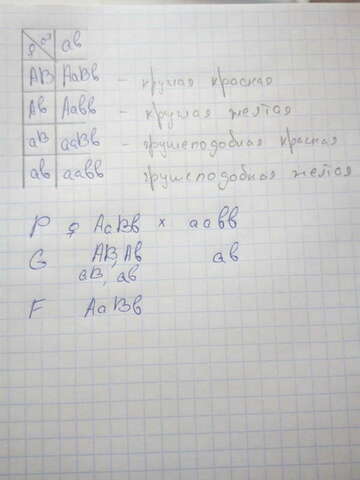 ♀ ♂ ав
АВ АаВв - круглая красная
Ав Аавв - круглая желтая
аВ ааВв - грушеподобная красная
ав аавв грушеподобная желтая
Р ♀ АаВв × аавв
G АВ, Ав ав
аВ, ав
F АаВв